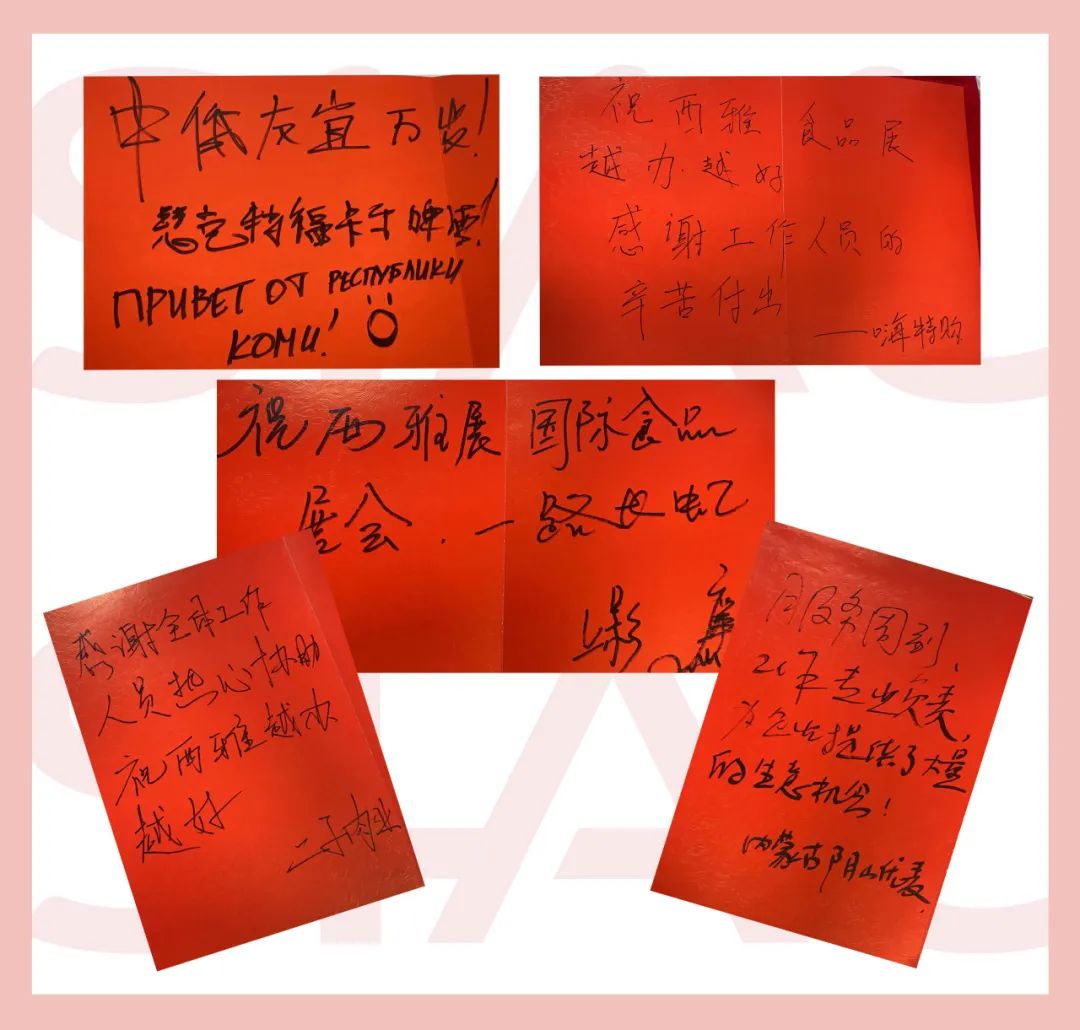 中俄友宜万岁!
克特福卡 啤酒!
ПРИВЕТ ОТ РЕСПУБЛИКИ
КОМИ!
祝西雅 食品展
越办越好
感谢工作人员的
辛苦付出
——嗨特购
祝西雅展国际食品
展会.一路长虹
感谢全体工作
人员热心协助
祝西雅越办
越好
二子肉业
服务周到,
为企业提供了大量
的生意机会!
内蒙古阴山优麦